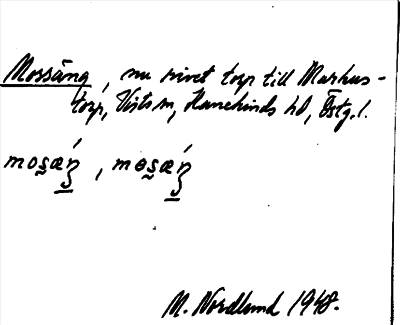 Mossäng, nu rivet torp till Markus-
torp, Vists sn, Hanekinds hd, Östg.l.
mos̰æ̀ŋ̲, mɵs̰æ̀ŋ̲
M. Nordlund 1948.